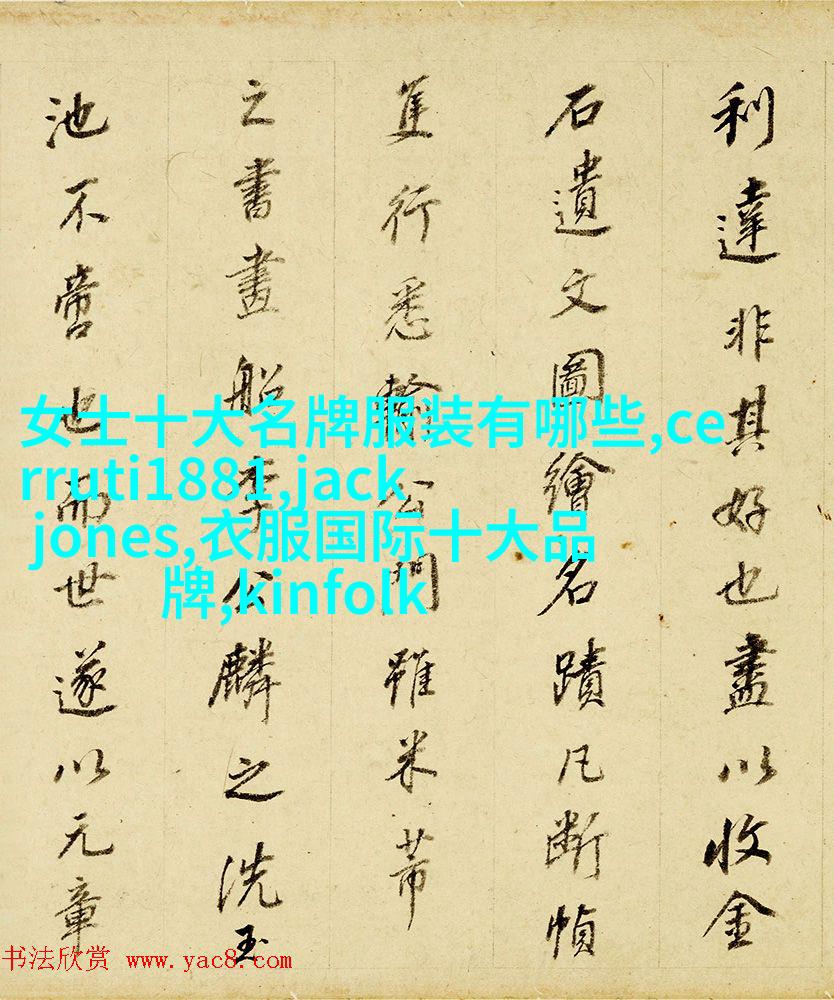 利達非其好也盡以收金
石遺文圖繪名蹟凡斷幀
隻行悉輸公門雖米芾
之書畫船李公麟之洗玉
池不啻也而世遂以元章
女士十大名牌服装有哪些,ce
rruti1881,jack
jones,衣服国际十大品
牌,kinfolk
书法欣赏 www.yac8.com